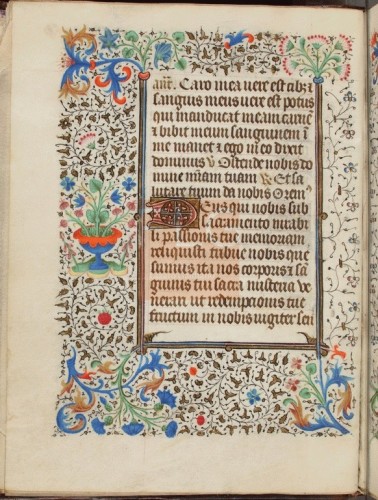 añ. Caro mea vere est cibꝫ
sanguis meus vere est potus
qui manducat meam carnē
& bibit meum sanguinem ī
me manet & ego in eo dixit
dominus ꝟ Ostende nobis do
mine mīam tuam ℟ Et sa
lutare tuum da nobis Orem9
Deus qui nobis sub
sacramento mirabi
li passionis tue memoriam
reliquisti tribue nobis que
sumus ita nos corporis & sā
guinis tui sacra misteria ve
nerari ut redempcionis tue
fructum in nobis iugiter sen